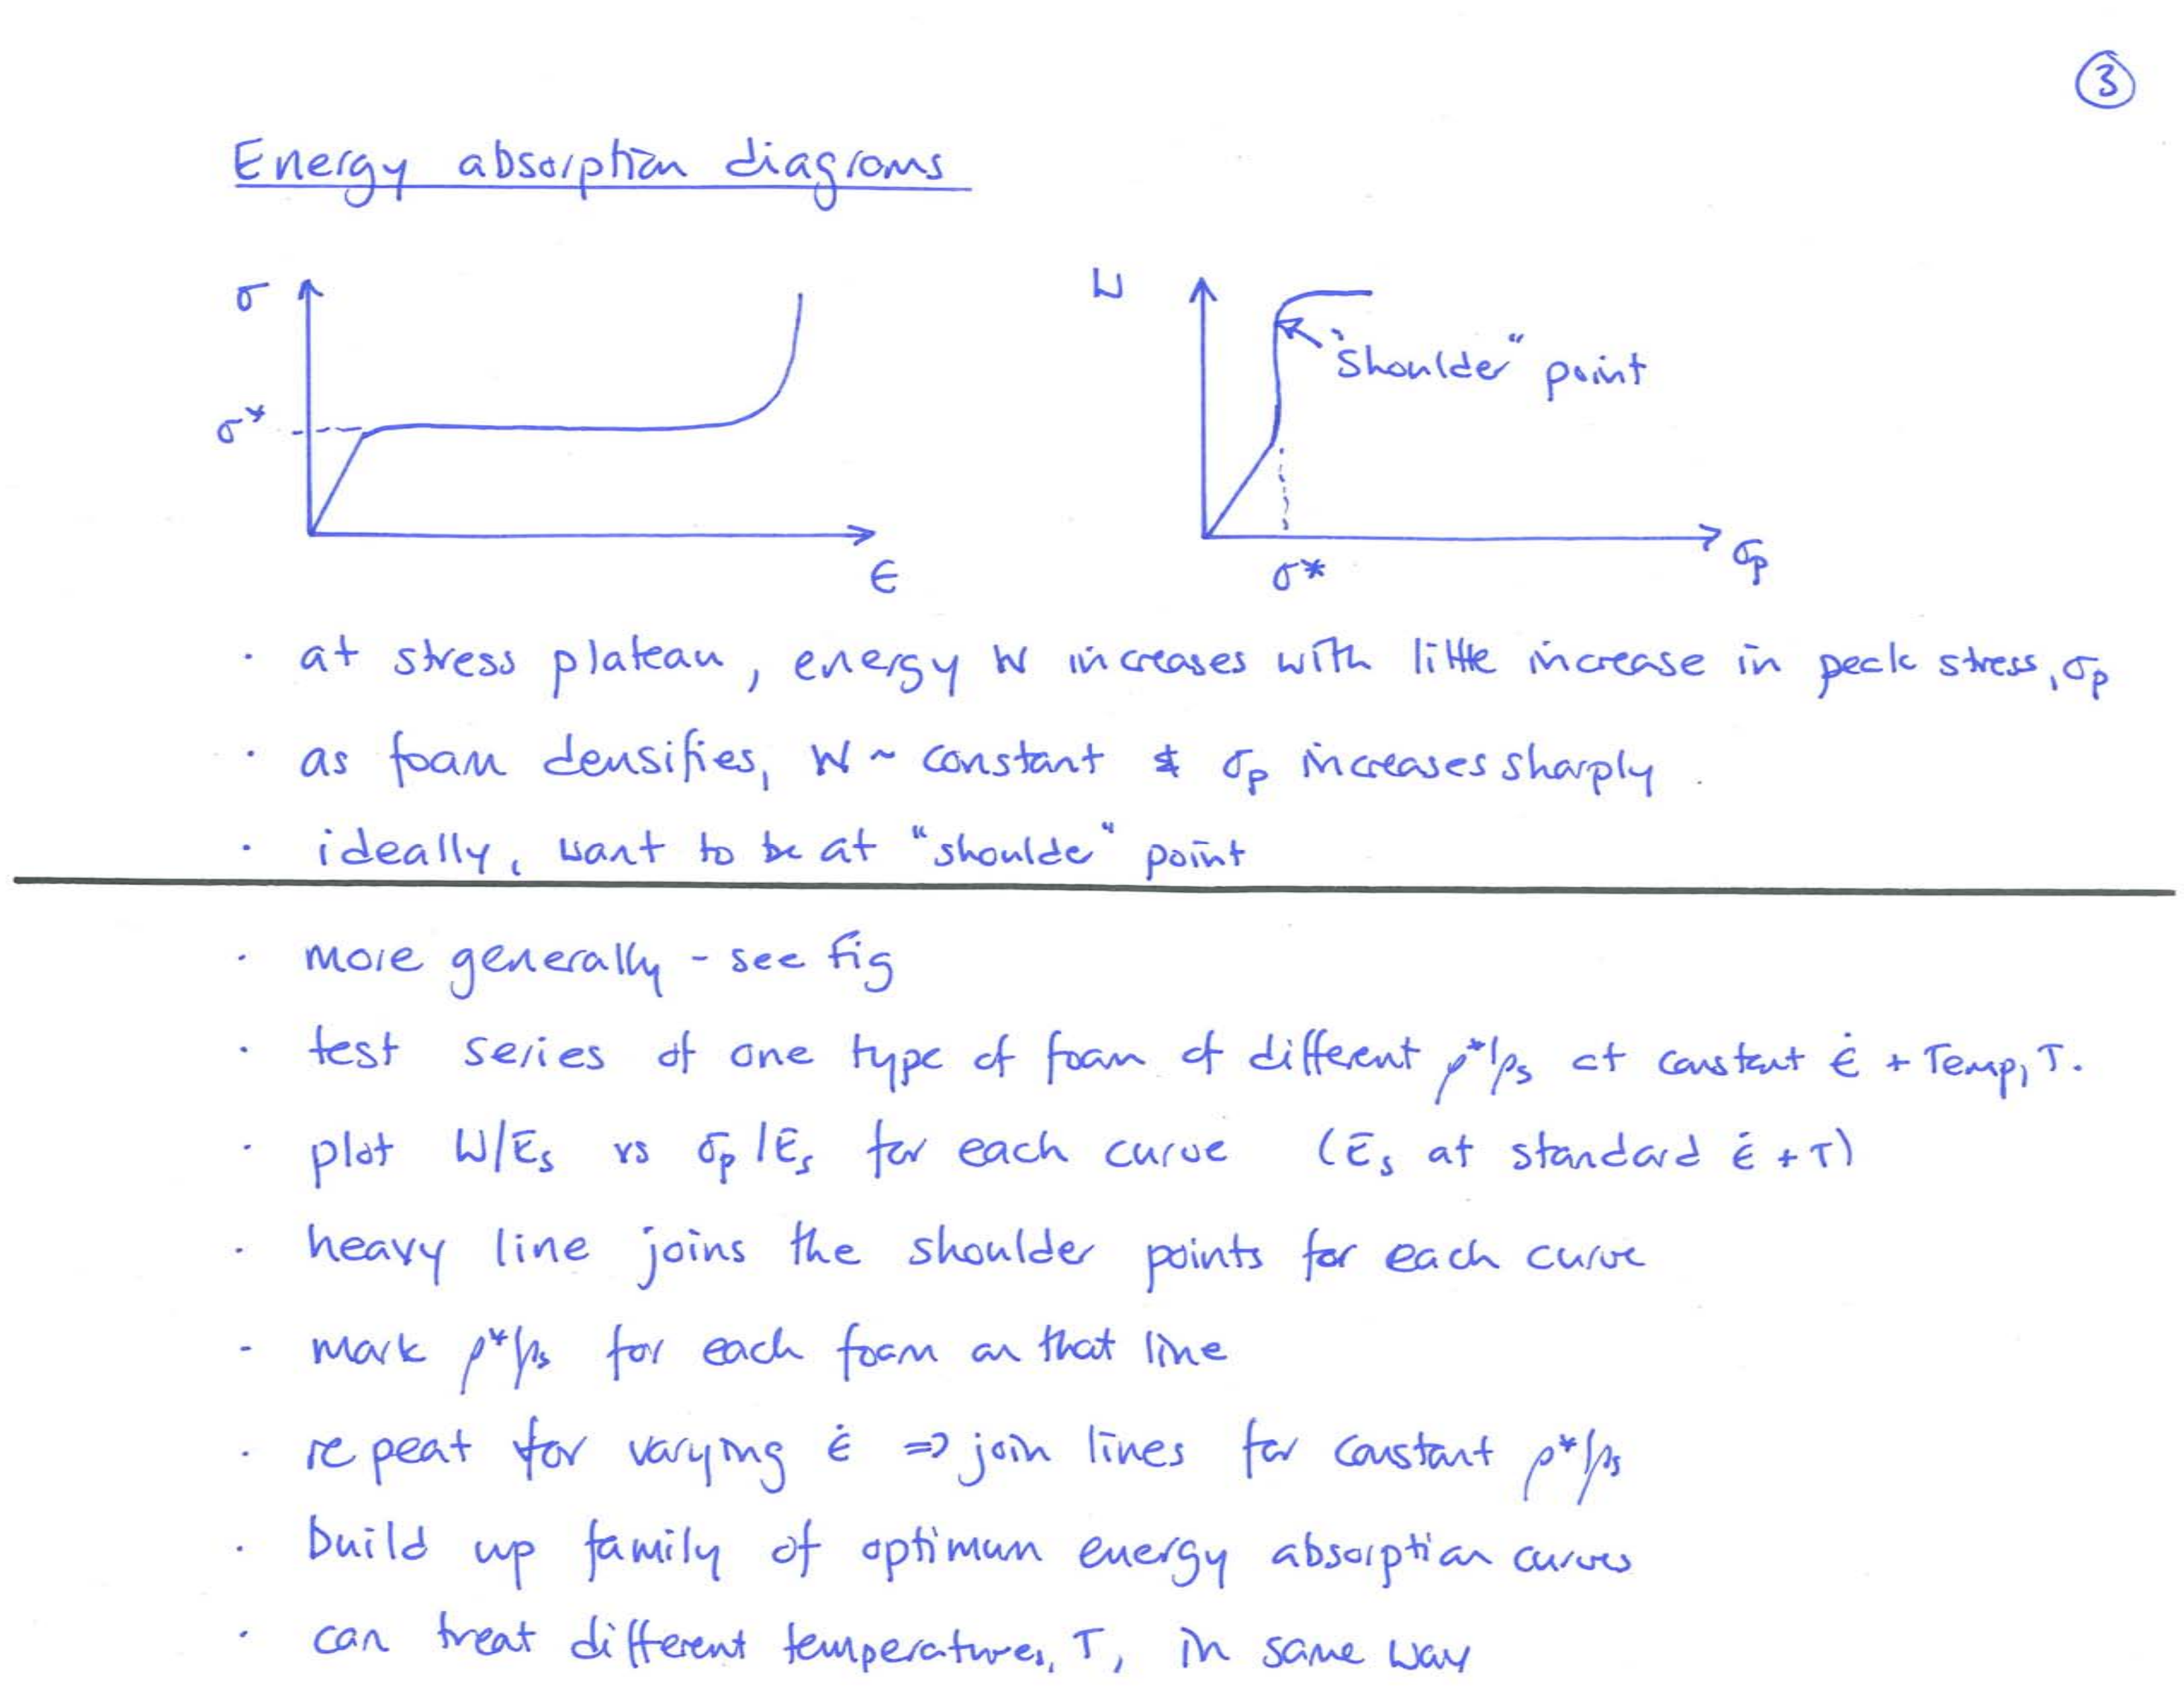 ③
Energy absorption diagrams
σ
σ*
ε
W
"shoulder" point
σ*
σp
· at stress plateau, energy W increases with little increase in peak stress, σp
· as foam densifies, W ~ constant & σp increases sharply.
· ideally, want to be at "shoulde" point
· more generally - see fig
· test series of one type of foam of different ρ*/ρs at constant ε̇ + Temp, T.
· plot W/Es vs σp/Es for each curve (Es at standard ε̇ + T)
· heavy line joins the shoulder points for each curve
- mark ρ*/ρs for each foam on that line
· repeat for varying ε̇ ⇒ join lines for constant ρ*/ρs
· build up family of optimum energy absorption curves
· can treat different temperatures, T, in same way